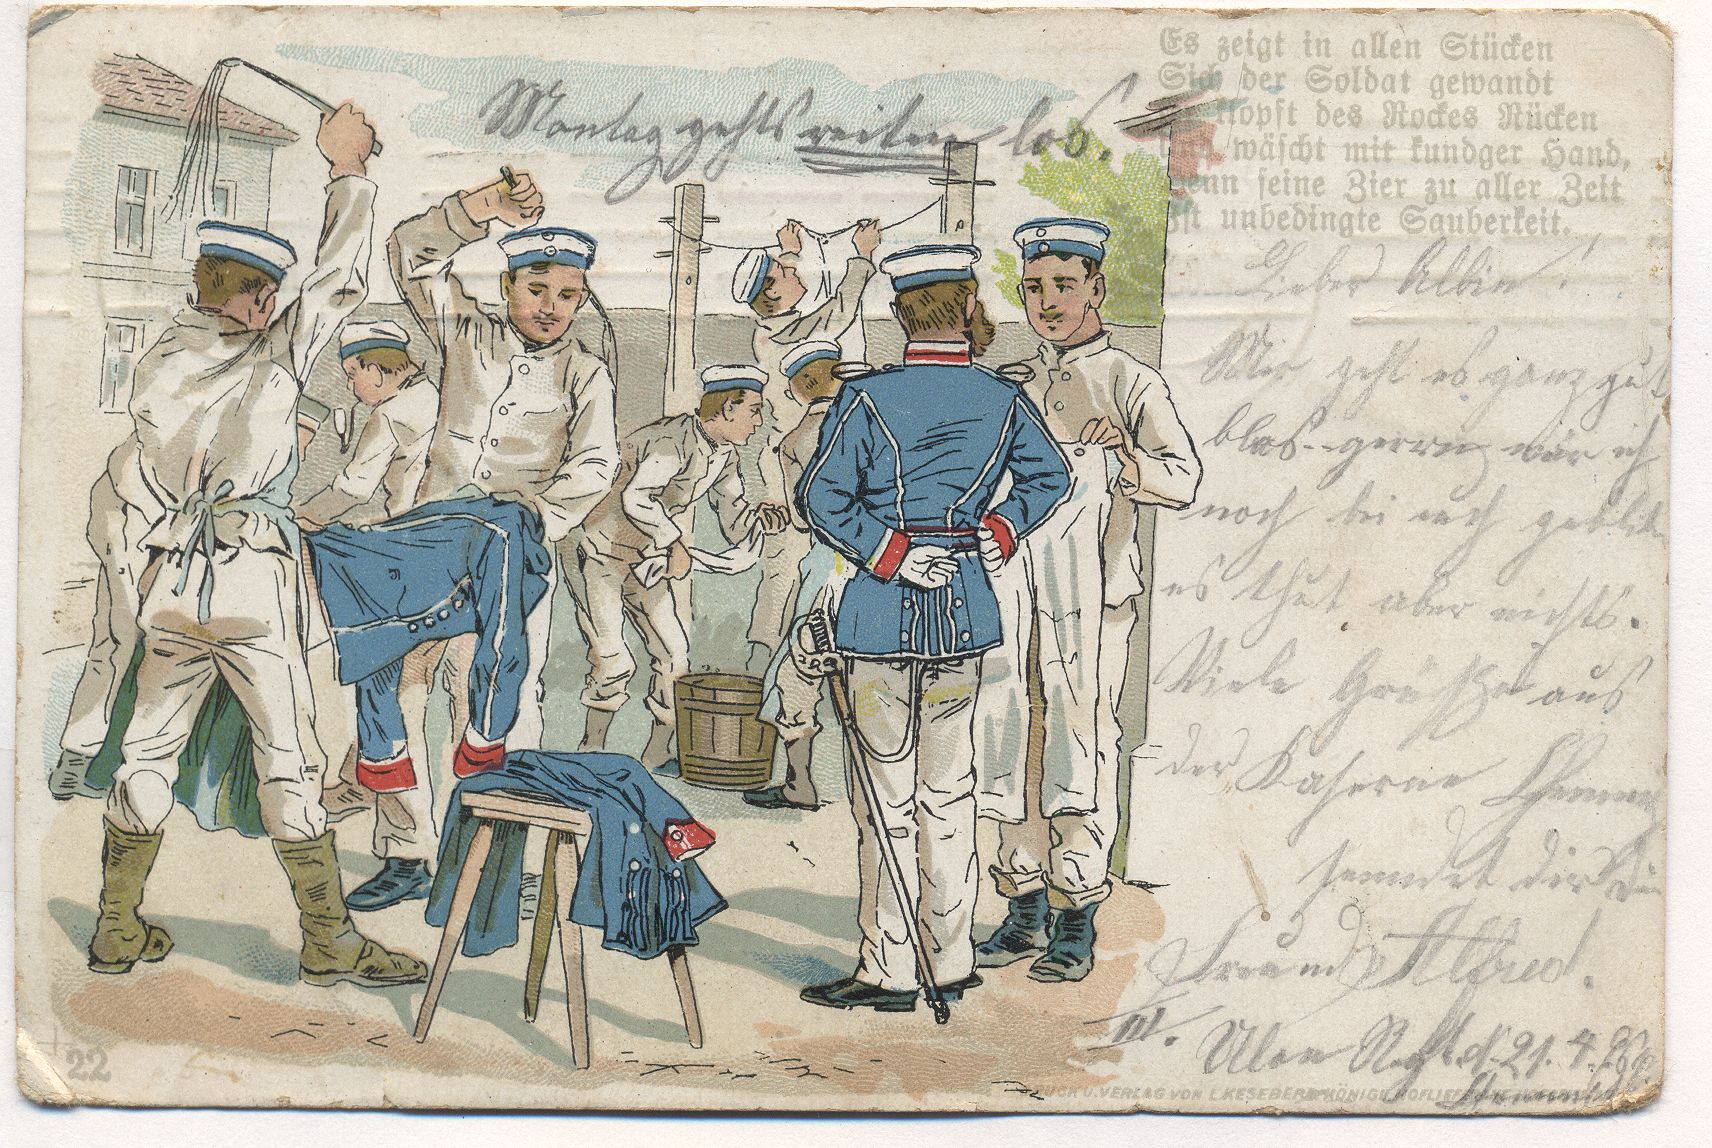 Es zeigt in allen Stücken
Sich der Soldat gewandt
klopft des Rockes Rücken
wäscht mit kundger Hand,
Denn seine Zier zu aller Zeit
Ist unbedingte Sauberkeit.
Montag gehts reiten los.
Lieber Albin!
Mir geht es ganz gut
blos gerne wär ich
noch bei euch
es thut aber nichts.
Viele Grüße aus
der Kaserne
sendet dir Dein
Freund Alfred.
III. Ulan Rgt. d. 21. 4.
22
DRUCK U. VERLAG VON L. KESEBERG KÖNIGL. HOFLIEF